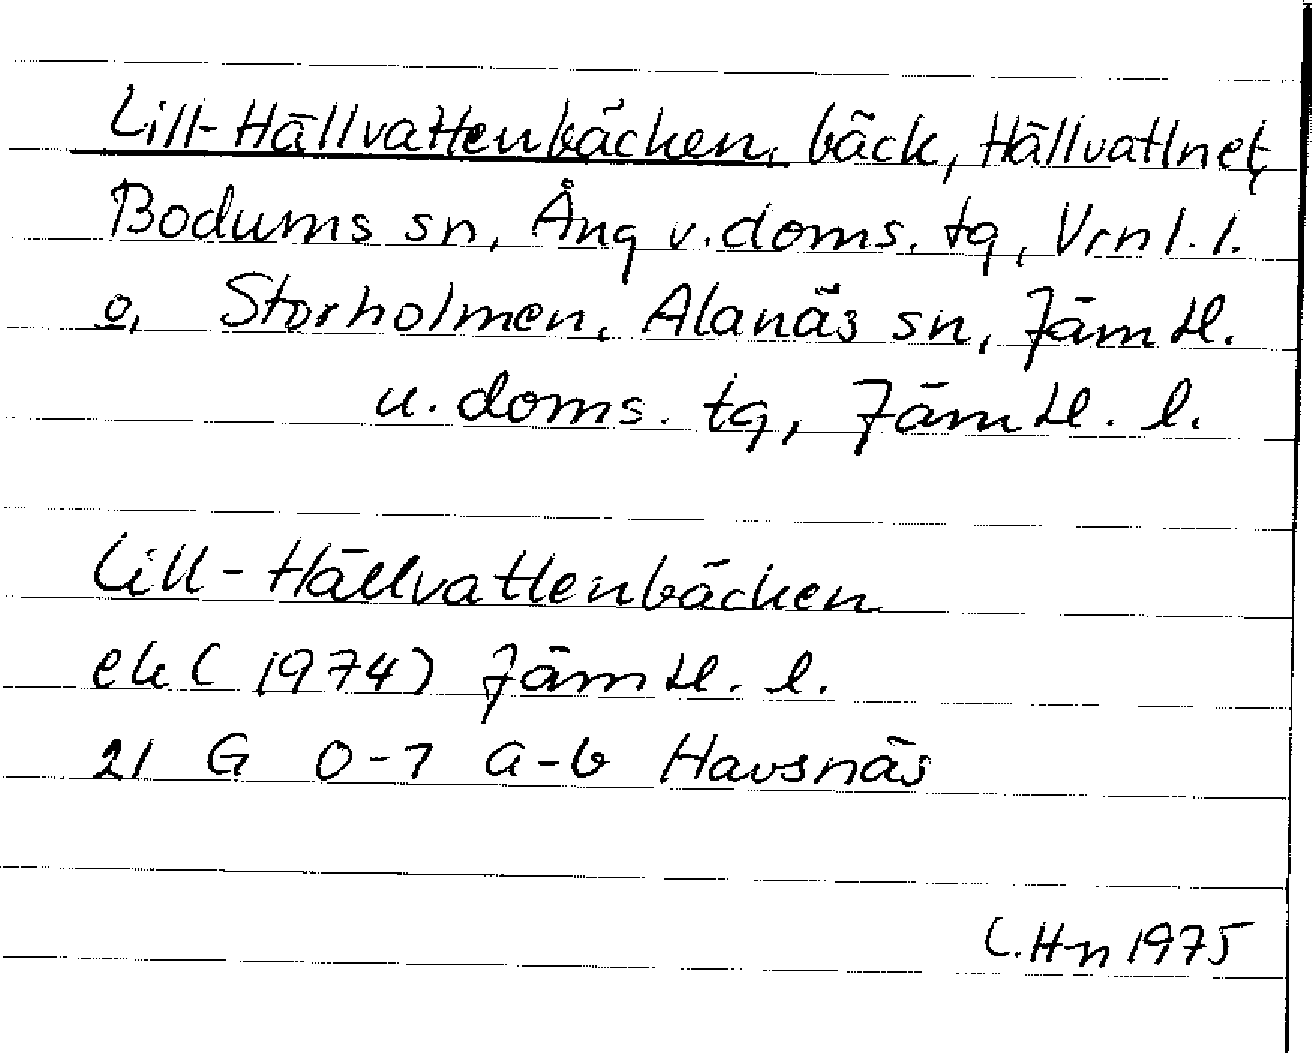 Lill-Hällvattenbäcken, bäck, Hällvattnet,
Bodums sn, Ång v. doms. tg, Vrnl. l.
o, Storholmen, Alanäs sn, Jämtl.
u. doms. tg, Jämtl. l.
Lill-Hällvattenbäcken
ek (1974) Jämtl. l.
21 G 0-1 a-b Havsnäs
C.H-n 1975